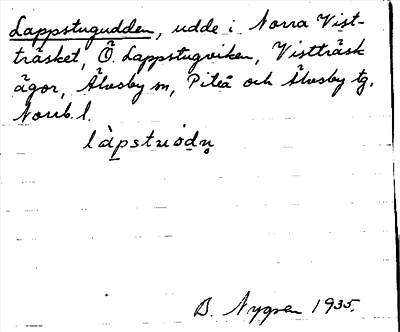 Lappstugudden, udde i Norra Vist-
träsket, Ö. Lappstugviken, Vistträsk
ägor, Älvsby sn, Piteå och Älvsby tg.
Norrb. l.
B. Nygren 1935.